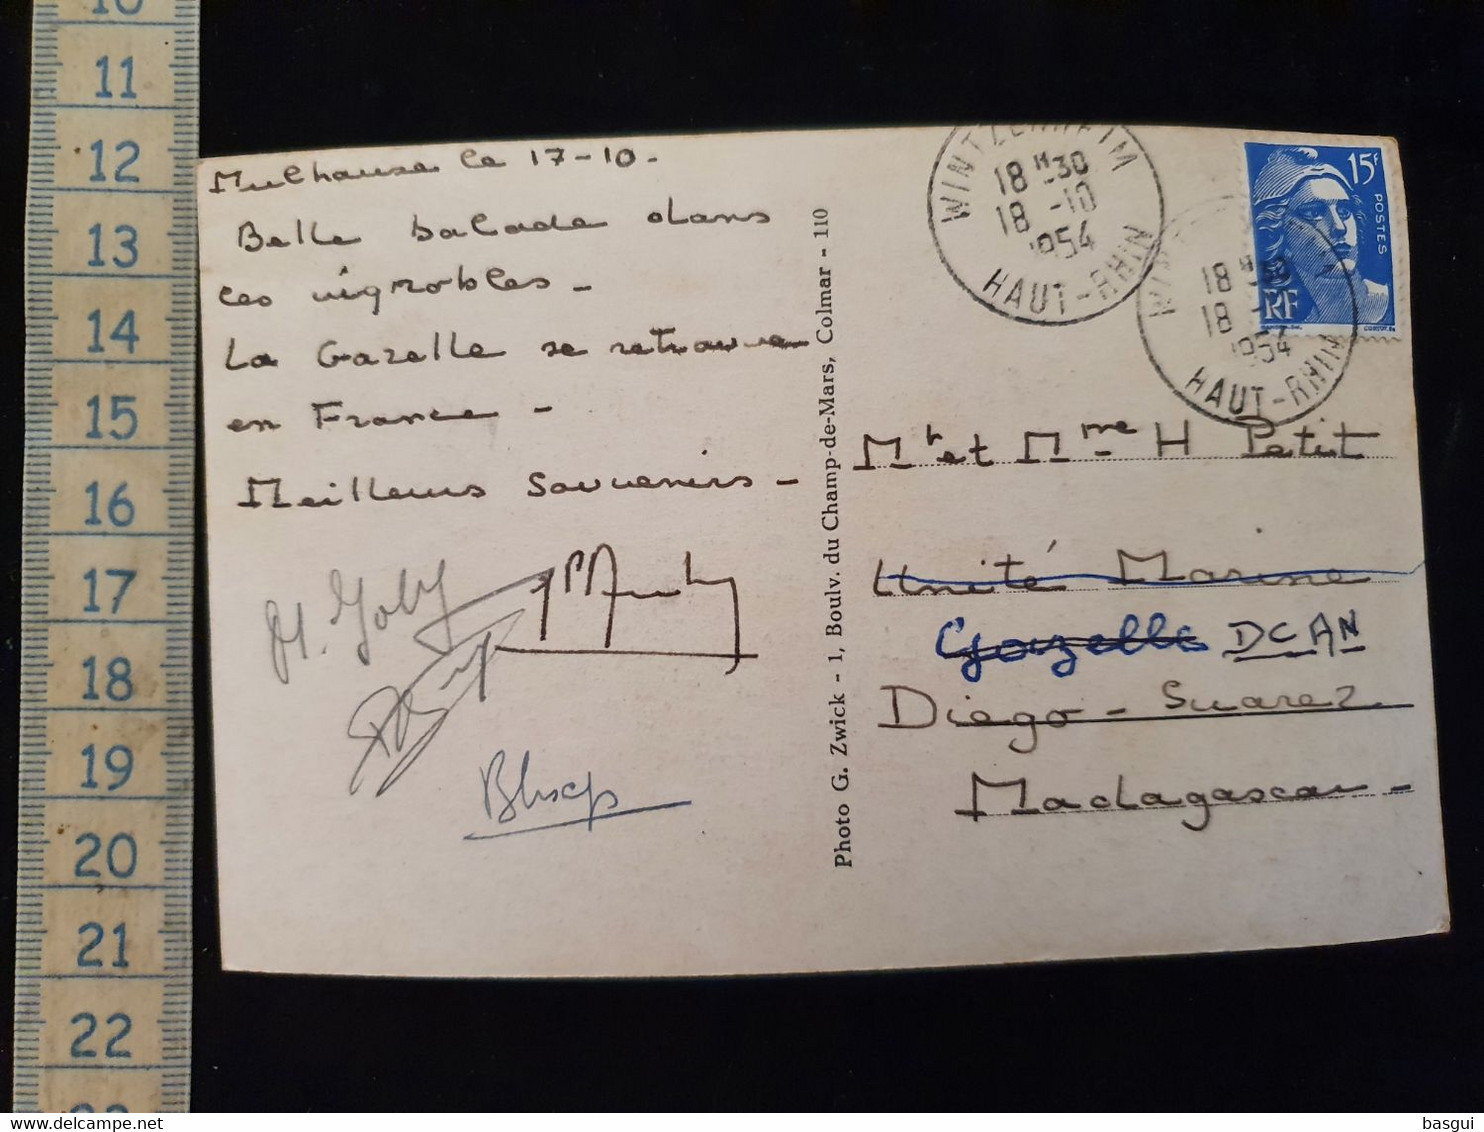 10
11
12
13
14
15
16
17
18
19
20
21
22
Mulhouse le 17-10.
Belle balade dans
les vignobles -
La Gazelle se retrouve
en France -
Meilleurs Souvenirs -
Photo G. Zwick - 1, Boulv. du Champ-de-Mars, Colmar - 110
WINTZENHEIM
18 H 30
18 -10
1954
HAUT-RHIN
18 H 30
18 -
1954
HAUT-RHIN
15F
POSTES
RF
Mr et Mme H Petit
Unité Marine
Gazelle DCAN
Diego-Suarez
Madagascar -
basgui